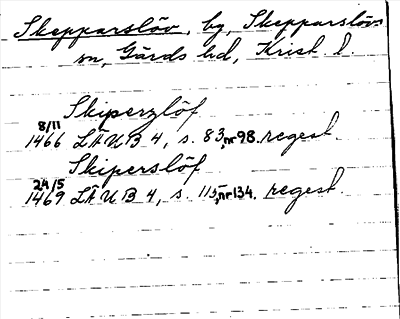 Skepparslöv, by, Skepparslövs
sn, Gärds hd, Krist. l.
Skiperzlöf
8/11
1466 LÄUB 4, s. 83, nr 98. regest.
Skiperslöf
24/5
1469 LÄUB 4, s. 115, nr 134. regest.